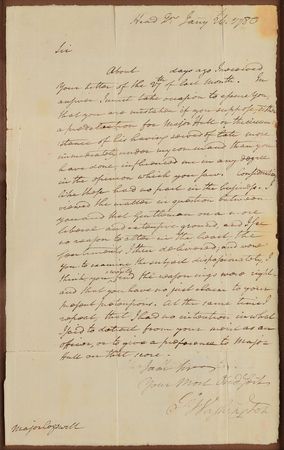 Head Qrs Jany 26. 1780
Sir
About days ago I received
Your letter of the 27th of last month. In
answer I must take occasion to assure you,
that you are mistaken if you suppose either
a predilection for Major Hull or the circum
stance of his having served of late more
immediately under my command than you
have done, influenced me in any degree
in the opinion which you saw. Considerations
like these had no part in the business. I
viewed the matter in question between
you and that Gentleman on a more
liberal and extensive ground, and I see
no reason to alter in the least the
sentiments I then delivered, and were
you to examine the subject dispassionately, I
think you would find the reasonings were right
and that you have no just claim to your
present pretensions. At the same time I
repeat, that I had no intention in what
I said to detract from your merit as an
officer, or to give a preference to Major
Hull on that score.
I am Sir
Your Most Obed Servt
G Washington
Major Cogswell